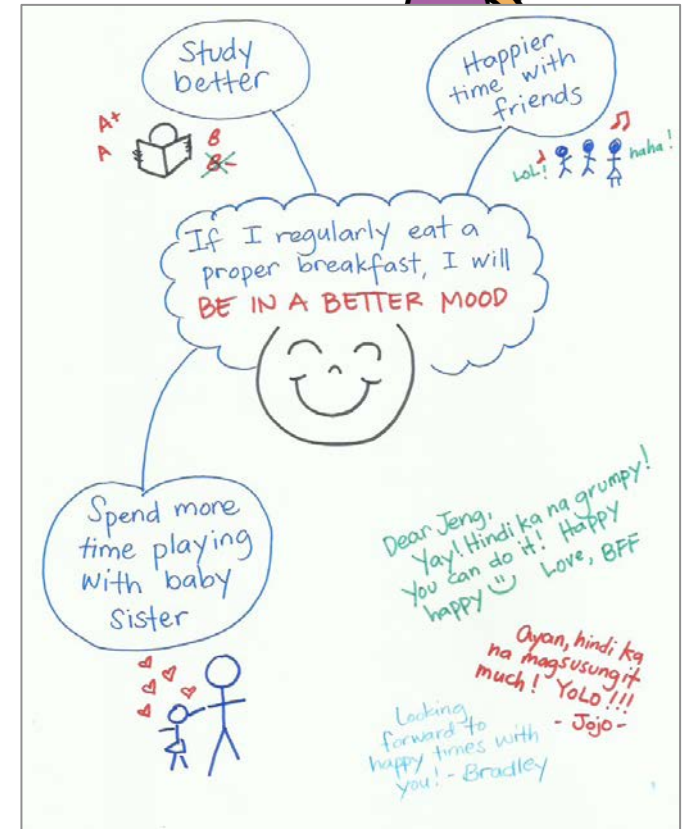 Study
better
Happier
time with
friends
A+
A
B
B-
LOL!
haha!
If I regularly eat a
proper breakfast, I will
BE IN A BETTER MOOD
Spend more
time playing
with baby
sister
Dear Jeng,
Yay! Hindi ka na grumpy!
You can do it! Happy
happy Love, BFF
Ayan, hindi ka
na magsusungit
much! YOLO!!!
- Jojo -
Looking
forward to
happy times with
you! - Bradley